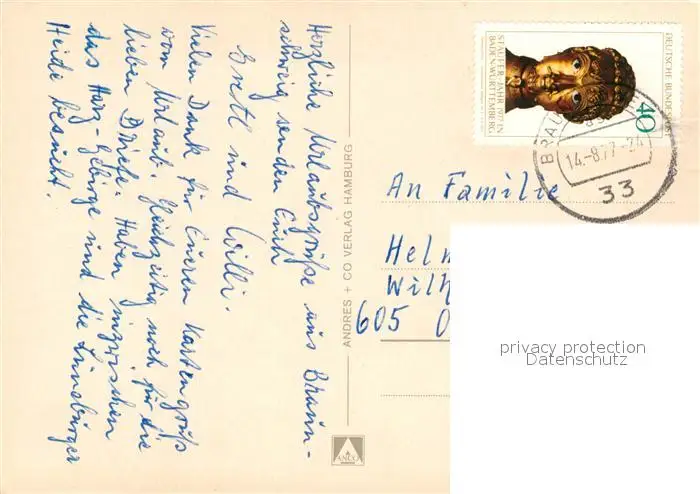 Herzliche Urlaubsgrüße aus Braun-
schweig senden Euch
Gretl und Willi.
Vielen Dank für Eueren Kartengruß
vom Urlaub. Gleichzeitig noch für die
lieben Briefe. Haben inzwischen
das Harz-Gebirge und die Lüneburger
Heide besucht.
ANDRES + CO VERLAG HAMBURG
ANCO
STAUFER-JAHR 1977 IN
BADEN-WÜRTTEMBERG
DEUTSCHE BUNDESPOST
40
14.-8.77-24
33
An Familie
Helm
Wilh
605 O
privacy protection
Datenschutz